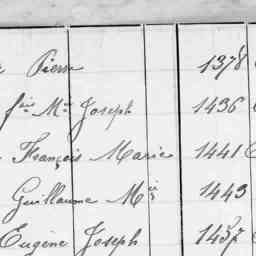 Pierre 1378
fois Mie Joseph 1436
François Marie 1441
Guillaume Mie 1443
Eugène Joseph 1457